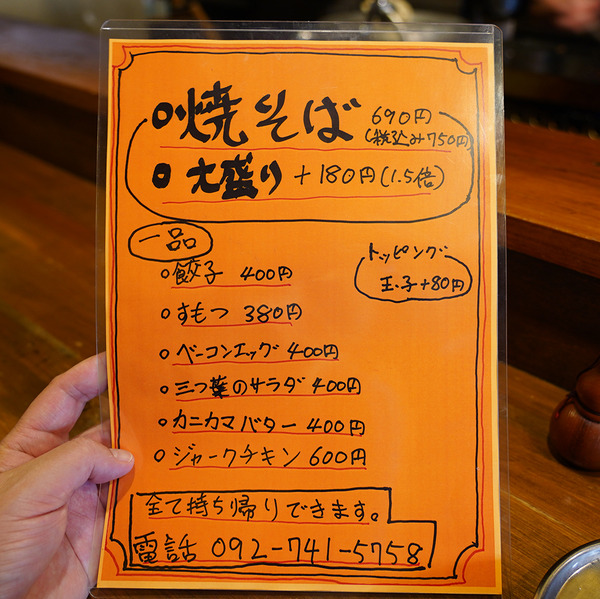 焼そば 690円
(税込み750円)
大盛り +180円(1.5倍)
一品
餃子 400円
すもつ 380円
ベーコンエッグ 400円
三つ葉のサラダ 400円
カニカマバター 400円
ジャークチキン 600円
トッピング
玉子+80円
全て持ち帰りできます。
電話 092-741-5758